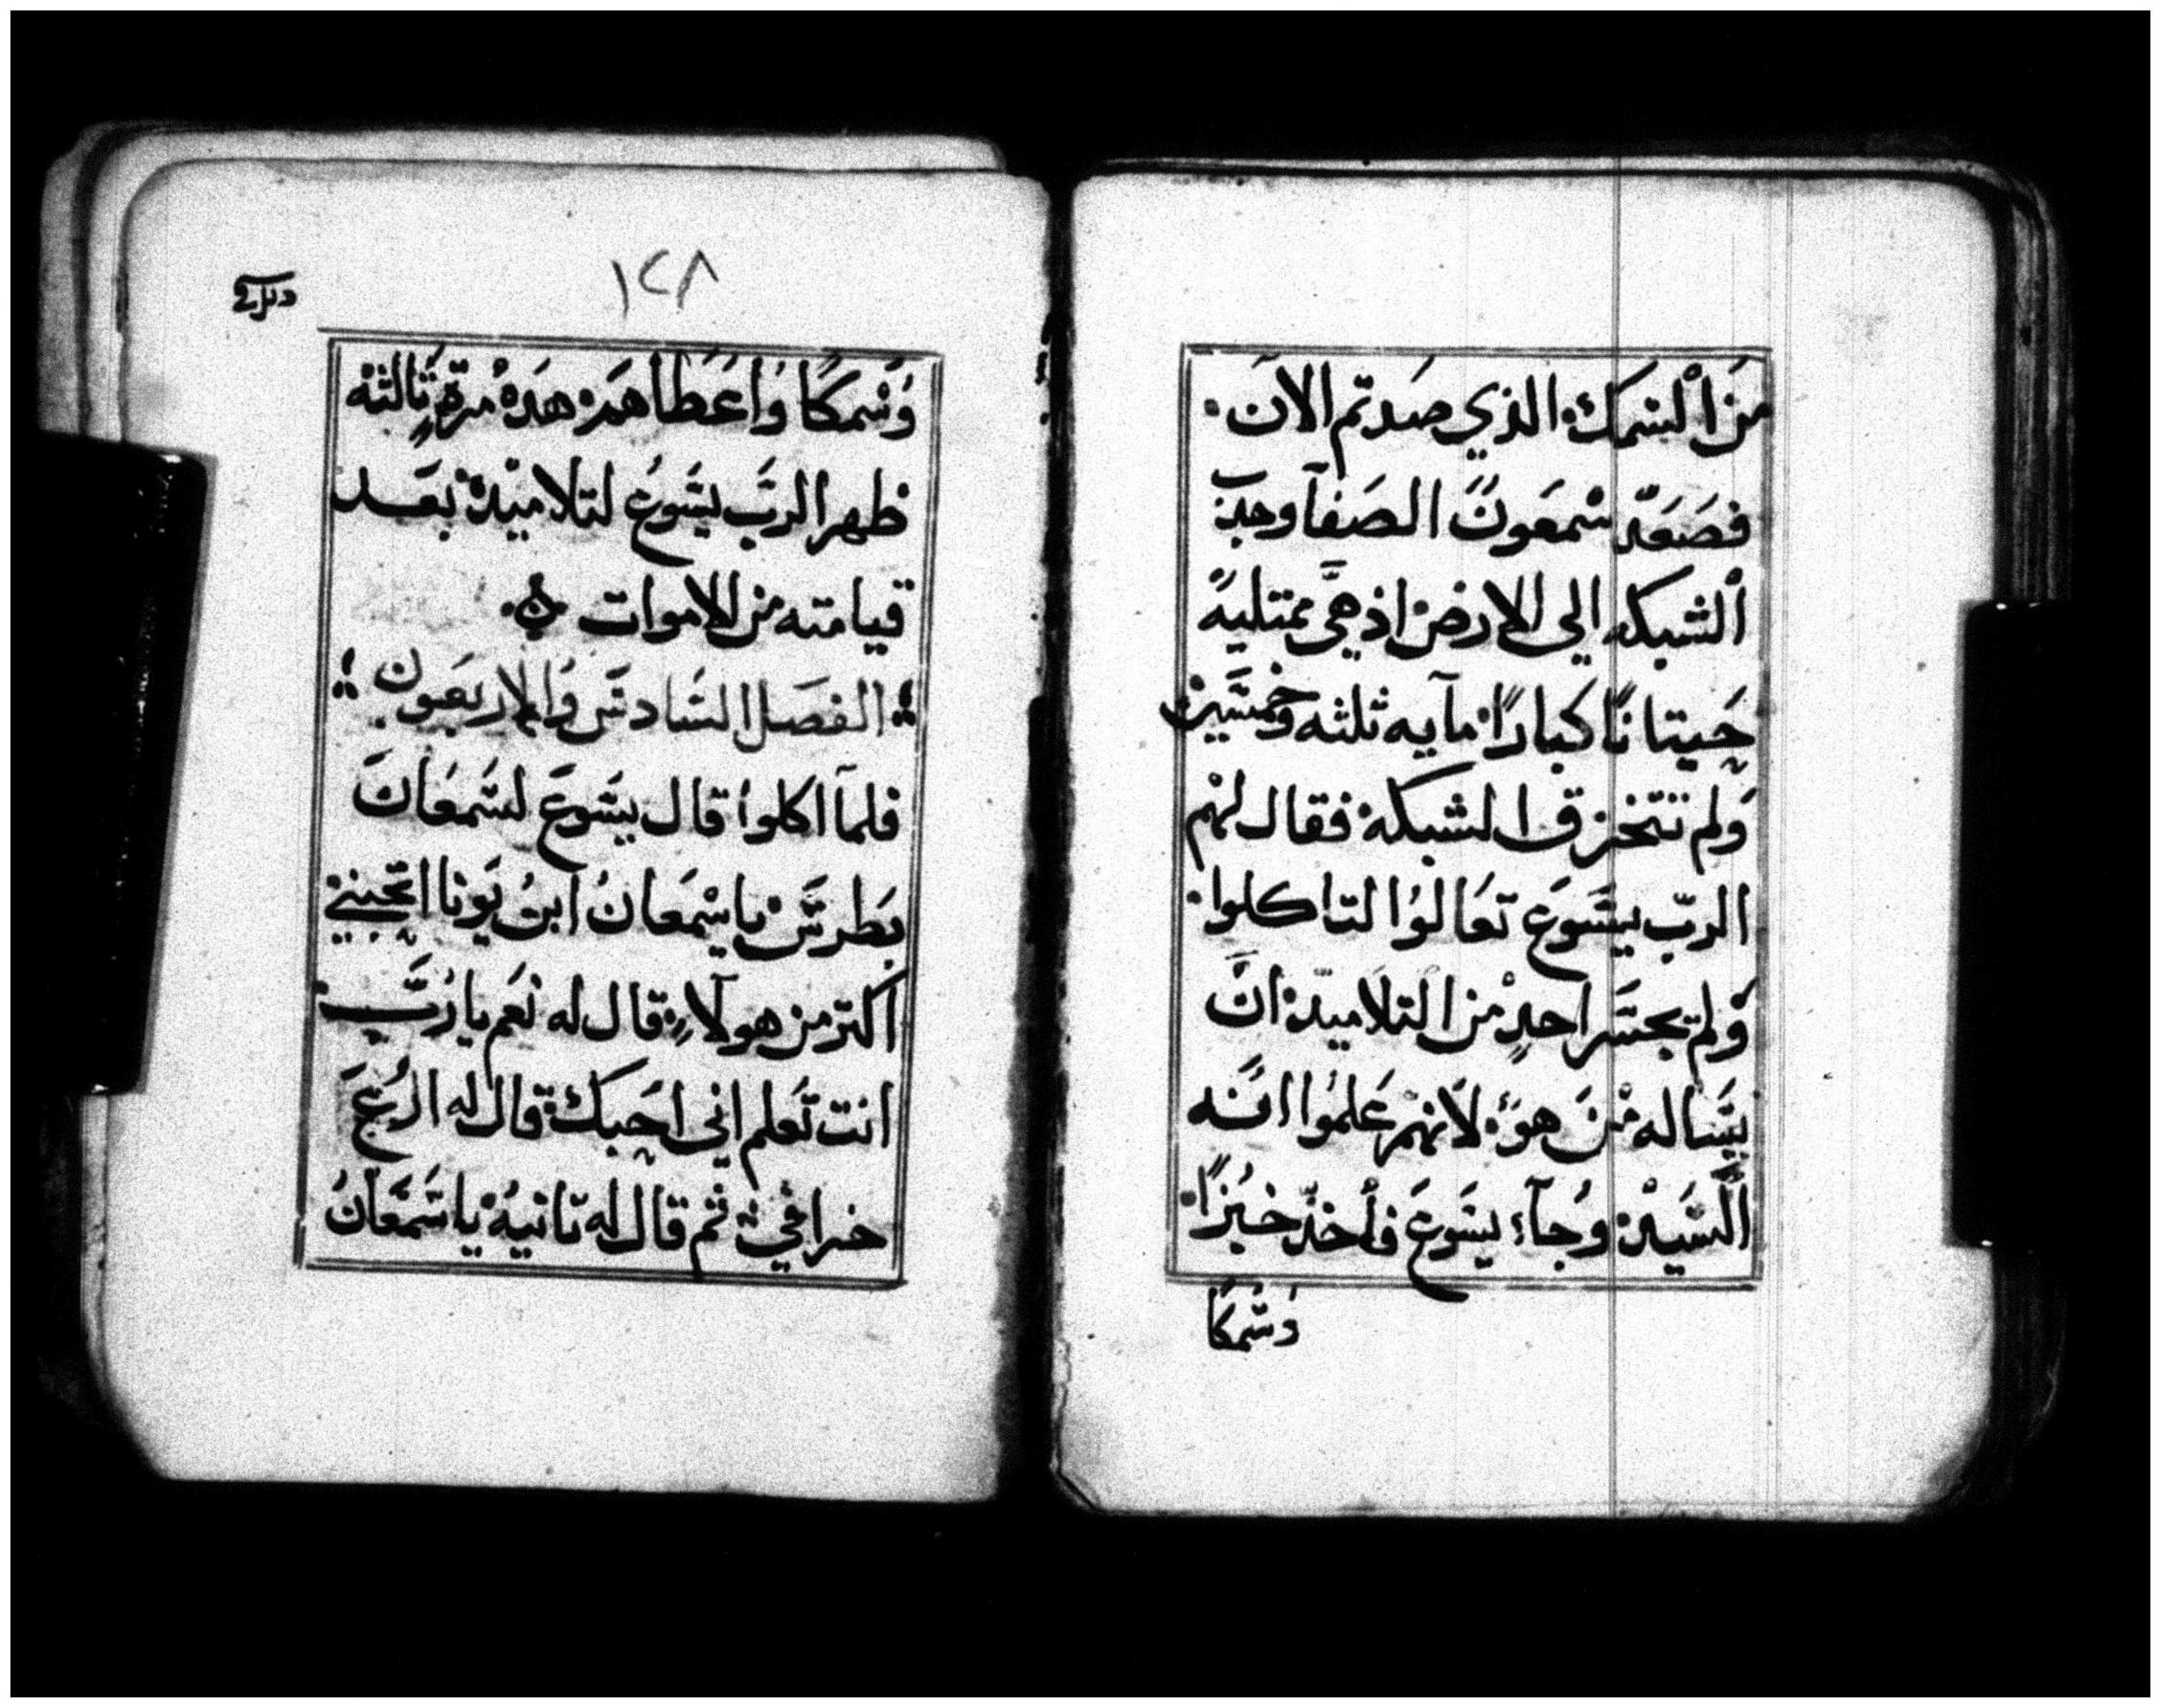 مَن اْلسَمَك الذي صَدتم الآن.
فصَعَد سْمعَونَ الصَفآ وجدَب
اْلشبكه الي الارض اذ هيَّ ممتليةً
حَيتانًا كبارًا مآيه ثلثه وَخمسَين
وَلم تتخزق الشبكة فقال لهْم
الربّ يسَوعَ تعَالوُا لتاكلوا.
وَلم يجسَر احدٍ من التلاميدْ انَّ
يسَاله مْنَ هوَ لانهْم عَلموُا انَه
السَيدْ وُجآء يسَوعَ فأخدّ خبُزًا.
وَسَمكًا
١٢٨
وَسَمكًا وُاعَطَاهمَ هَدهْ مرّةٍ ثَالثهْ
ظهر الربَ يسَوعُ لتلاميدْه بعَد
قيامته من الاموات
الفصَل السَادسَ وُالاربعَون
فلمآ اكلوا قال يسَوعَ لسَمعَانَ
بطَرسَ ياسْمعَانُ ابنُ يَونا اتحَبني
اكتر من هولآءِ قال له نعَم يا ربَ
انت تعَلم اني احَبك قال له ارُعَ
خرافي ثم قال له تانيهْ ياسَمعَّانُ